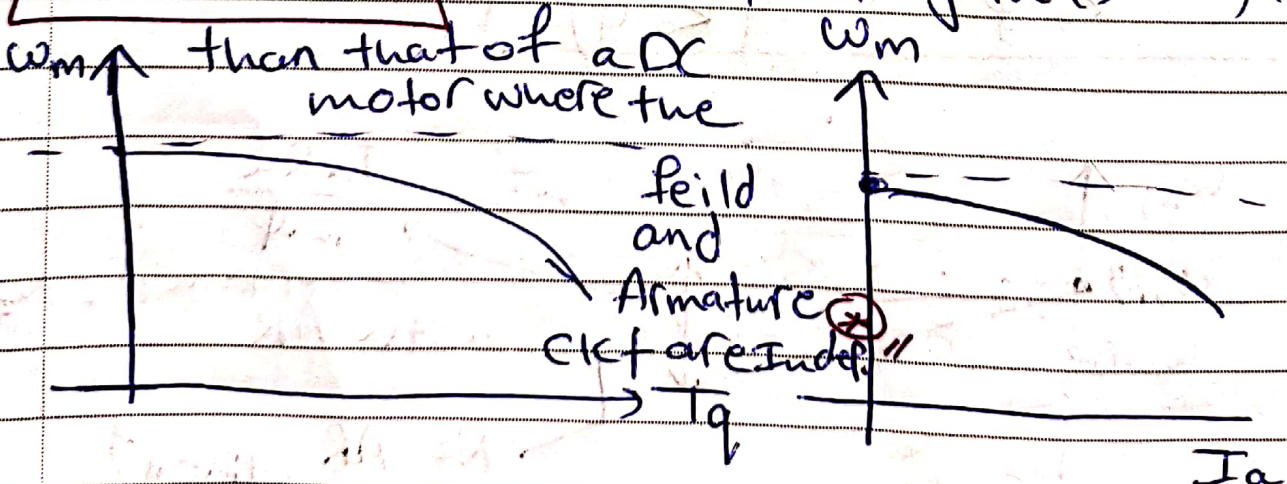 ωm than that of a DC ωm
motor where the
feild
and
Armature *
Ckt are Indep. "
Tq
Ia